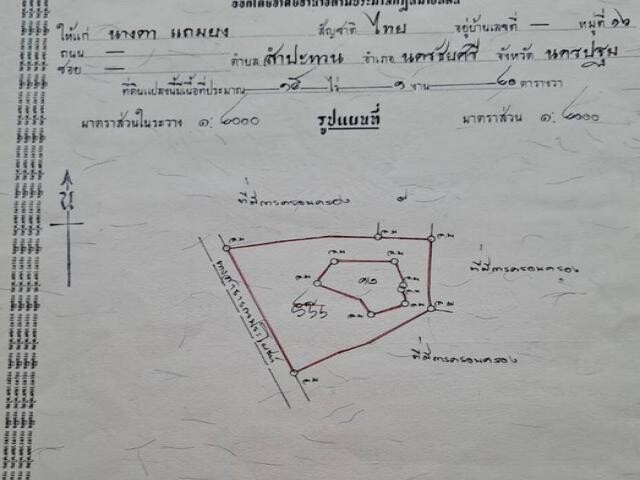 ให้แก่ นางดา แถมยง สัญชาติ ไทย อยู่บ้านเลขที่ — หมู่ที่ ๑๖
ถนน — ตำบล สำปะทวน อำเภอ นครชัยศรี จังหวัด นครปฐม
ซอย —
ที่ดินแปลงนี้มีเนื้อที่ประมาณ ไร่ ๑ งาน ๘๐ ตารางวา
มาตราส่วนในระวาง ๑: ๔๐๐๐ รูปแผนที่ มาตราส่วน ๑: ๔๐๐๐
น
ที่มีการครอบครอง
ที่มีการครอบครอง
ทางสาธารณประโยชน์
ที่มีการครอบครอง